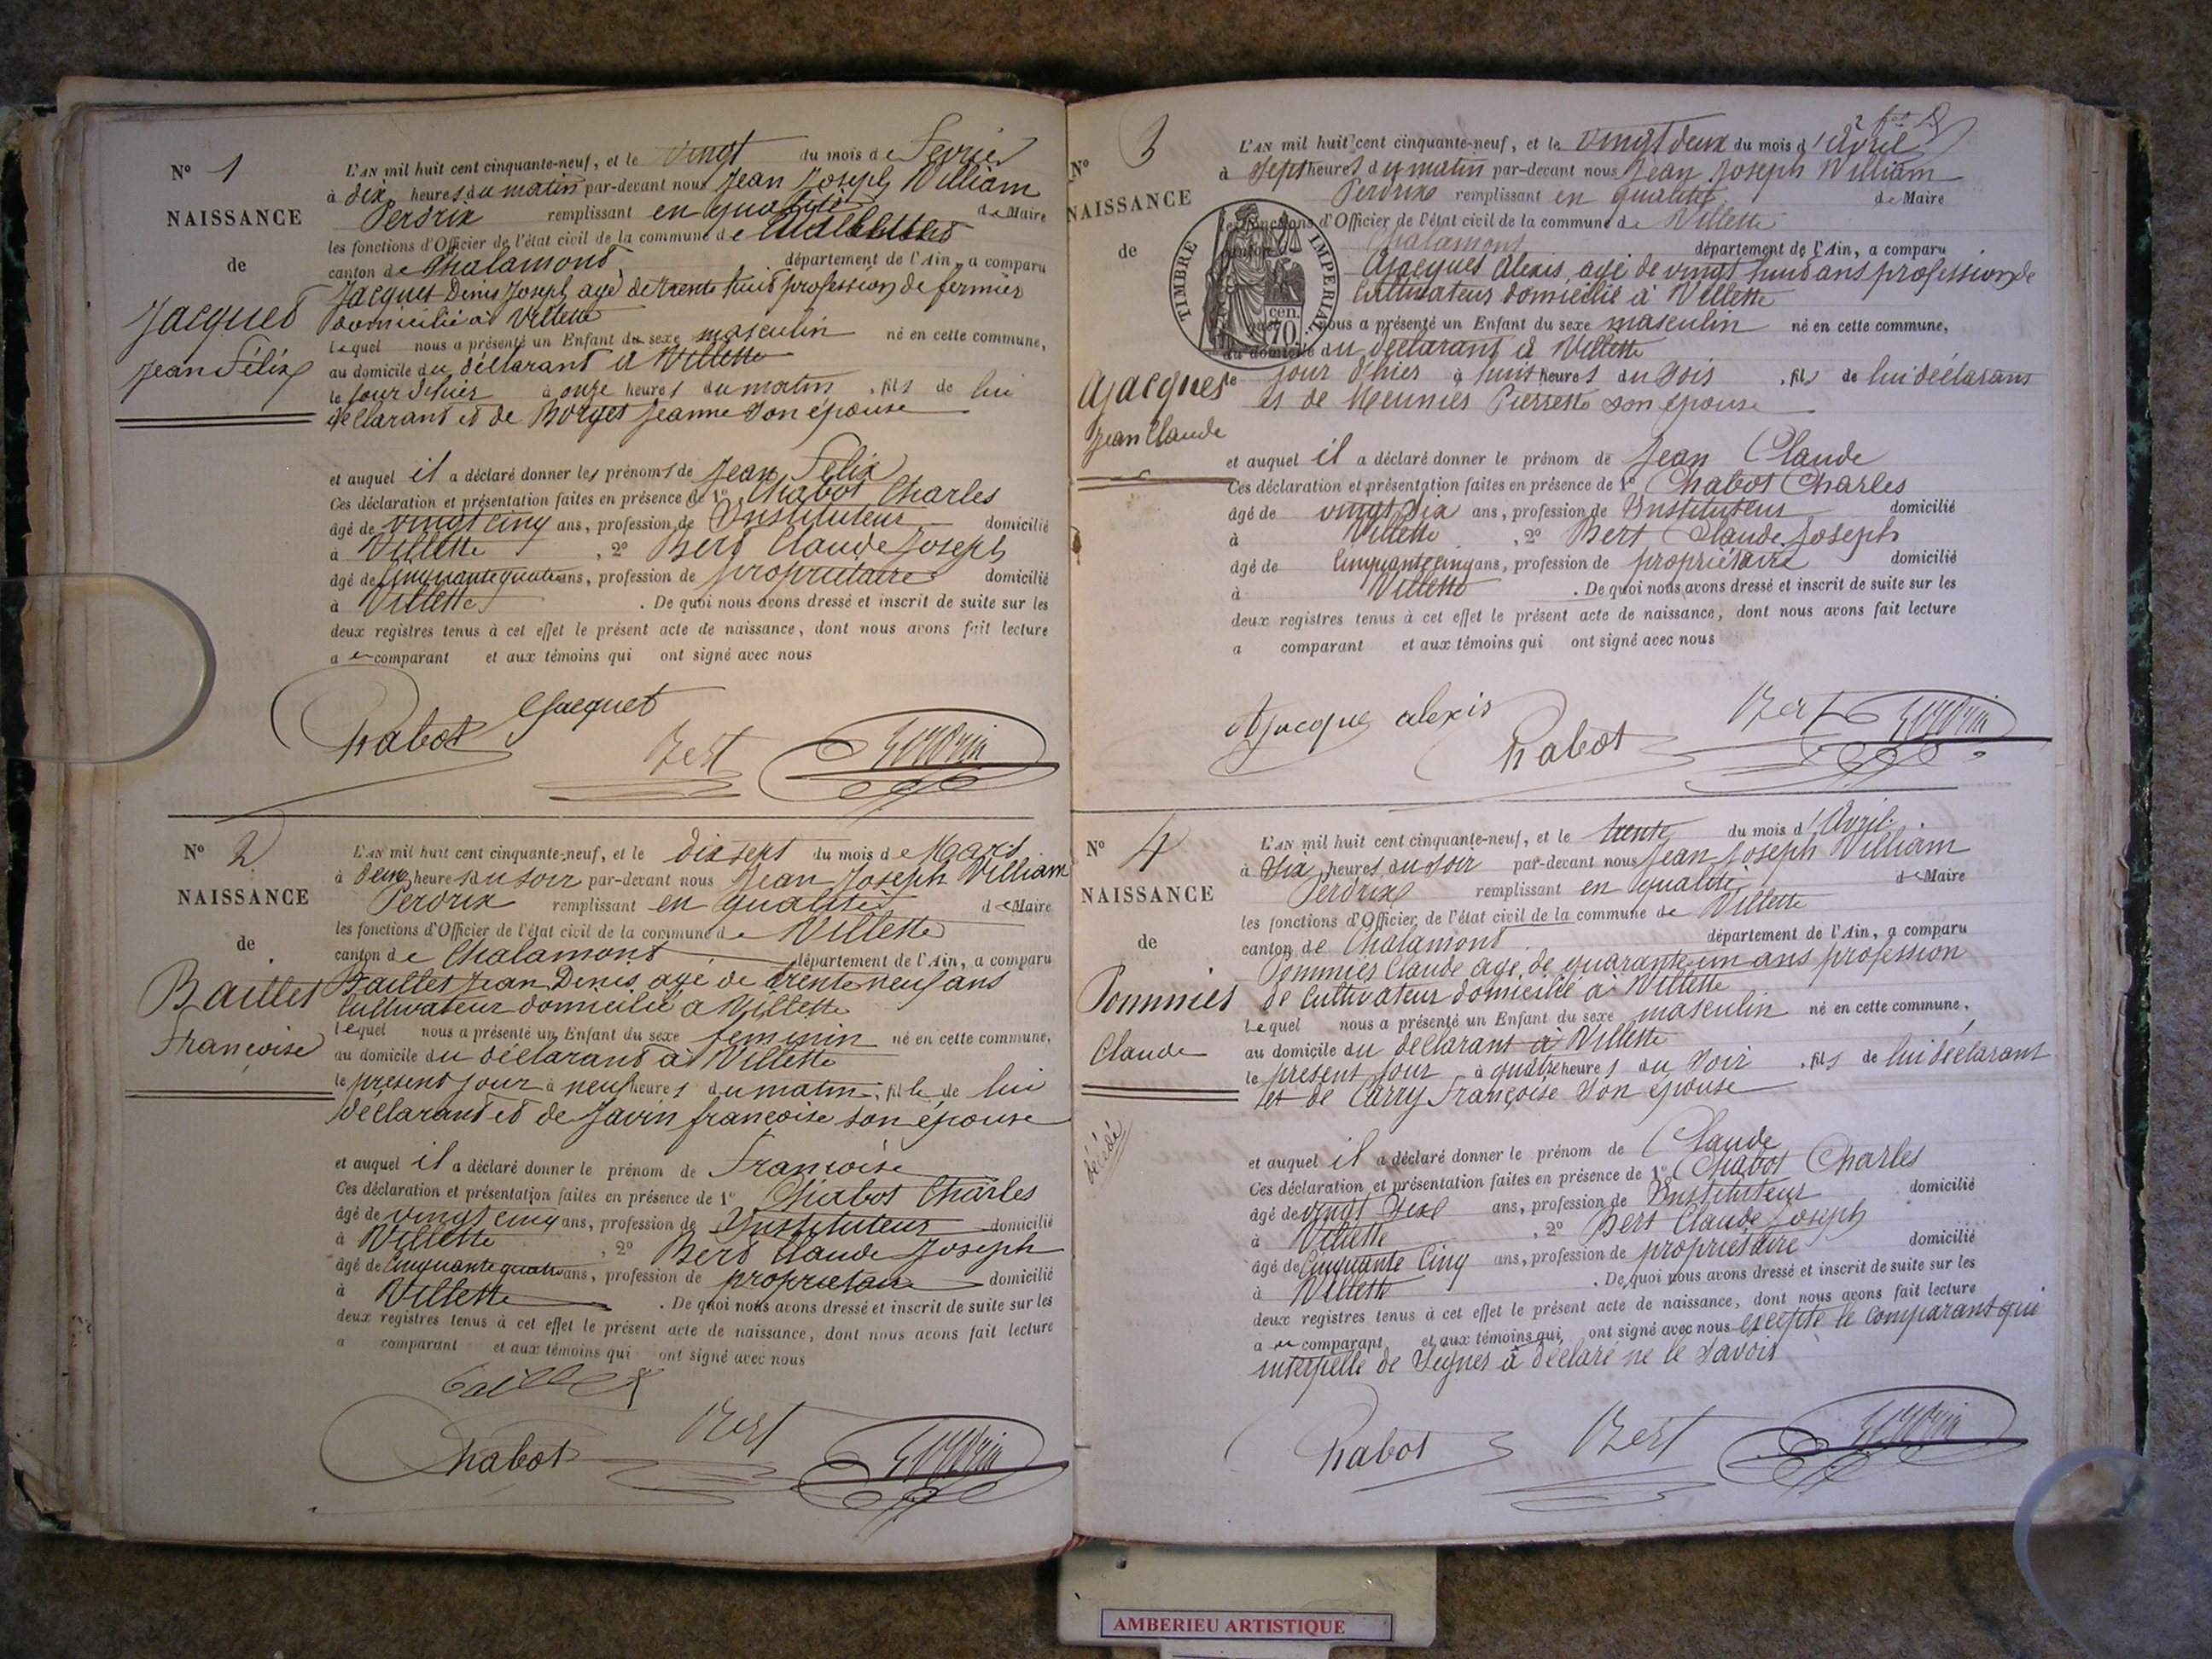 N° 1
NAISSANCE
de
Jacquet
Jean Félix
L'AN mil huit cent cinquante-neuf, et le vingt du mois de Fevrier
à dix heures du matin par-devant nous Jean Joseph William
Perdrix remplissant en qualité de Maire
les fonctions d'Officier de l'état civil de la commune de
canton de Chalamont département de l'Ain, a comparu
Jacquet Denis Joseph agé de trente huit profession de fermier
domicilié à Villette
lequel nous a présenté un Enfant du sexe masculin né en cette commune,
au domicile du déclarant à Villette
le jour d'hier à onze heures du matin, fils de lui
déclarant et de Borget Jeanne son épouse
et auquel il a déclaré donner les prénoms de Jean Félix
Ces déclaration et présentation faites en présence de 1° Chabot Charles
âgé de vingt cinq ans, profession de Instituteur domicilié
à Villette, 2° Bert Claude Joseph
âgé de cinquante quatre ans, profession de propriétaire domicilié
à Villette. De quoi nous avons dressé et inscrit de suite sur les
deux registres tenus à cet effet le présent acte de naissance, dont nous avons fait lecture
a comparant et aux témoins qui ont signé avec nous
Jacquet
Chabot Bert Perdrix
N° 2
NAISSANCE
de
Baillet
Françoise
L'AN mil huit cent cinquante-neuf, et le dix sept du mois de Mars
à deux heures du soir par-devant nous Jean Joseph William
Perdrix remplissant en qualité de Maire
les fonctions d'Officier de l'état civil de la commune de Villette
canton de Chalamont département de l'Ain, a comparu
Baillet Jean Denis agé de trente neuf ans
Cultivateur domicilié à Villette
lequel nous a présenté un Enfant du sexe feminin né en cette commune,
au domicile du déclarant à Villette
le présent jour à neuf heures du matin, fille de lui
déclarant et de Javin françoise son épouse
et auquel il a déclaré donner le prénom de Françoise
Ces déclaration et présentation faites en présence de 1° Chabot Charles
âgé de vingt cinq ans, profession de Instituteur domicilié
à Villette, 2° Bert Claude Joseph
âgé de cinquante quatre ans, profession de propriétaire domicilié
à Villette. De quoi nous avons dressé et inscrit de suite sur les
deux registres tenus à cet effet le présent acte de naissance, dont nous avons fait lecture
a comparant et aux témoins qui ont signé avec nous
Baillet
Chabot Bert Perdrix
N° 3
NAISSANCE
de
Ajacques
Jean Claude
TIMBRE IMPERIAL
cen.
70
L'AN mil huit cent cinquante-neuf, et le vingt deux du mois d'Avril
à sept heures du matin par-devant nous Jean Joseph William
Perdrix remplissant en qualité de Maire
les fonctions d'Officier de l'état civil de la commune de Villette
Chalamont département de l'Ain, a comparu
Ajacques Alexis agé de vingt huit ans profession de
Cultivateur domicilié à Villette
nous a présenté un Enfant du sexe masculin né en cette commune,
au domicile du déclarant à Villette
le jour d'hier à huit heures du soir, fils de lui déclarant
et de Meunier Pierrette son épouse
et auquel il a déclaré donner le prénom de Jean Claude
Ces déclaration et présentation faites en présence de 1° Chabot Charles
âgé de vingt six ans, profession de Instituteur domicilié
à Villette, 2° Bert Claude Joseph
âgé de Cinquante cinq ans, profession de propriétaire domicilié
à Villette. De quoi nous avons dressé et inscrit de suite sur les
deux registres tenus à cet effet le présent acte de naissance, dont nous avons fait lecture
a comparant et aux témoins qui ont signé avec nous
Ajacque alexis
Chabot Bert Perdrix
N° 4
NAISSANCE
de
Pommier
Claude
décédé
L'AN mil huit cent cinquante-neuf, et le trente du mois d'Avril
à six heures du soir par-devant nous Jean Joseph William
Perdrix remplissant en qualité de Maire
les fonctions d'Officier de l'état civil de la commune de Villette
canton de Chalamont département de l'Ain, a comparu
Pommier Claude agé de quarante un ans profession
de Cultivateur domicilié à Villette
lequel nous a présenté un Enfant du sexe masculin né en cette commune,
au domicile du déclarant à Villette
le présent jour à quatre heures du soir, fils de lui déclarant
et de Carry Françoise son épouse
et auquel il a déclaré donner le prénom de Claude
Ces déclaration et présentation faites en présence de 1° Chabot Charles
âgé de vingt six ans, profession de Instituteur domicilié
à Villette, 2° Bert Claude Joseph
âgé de Cinquante Cinq ans, profession de propriétaire domicilié
à Villette. De quoi nous avons dressé et inscrit de suite sur les
deux registres tenus à cet effet le présent acte de naissance, dont nous avons fait lecture
a comparant et aux témoins qui ont signé avec nous excepté le comparant qui
interpellé de signer a déclaré ne le savoir
Chabot Bert Perdrix
AMBERIEU ARTISTIQUE